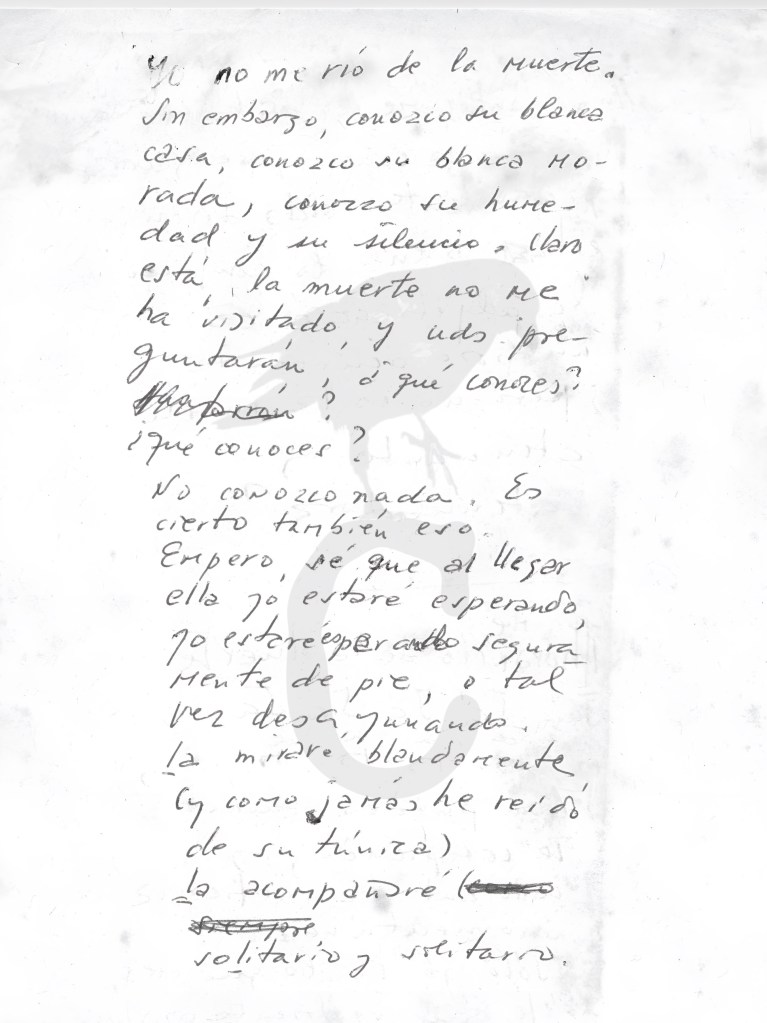 Yo no me rió de la muerte.
Sin embargo, conozco su blanca
casa, conozco su blanca mo-
rada, conozco su hume-
dad y su silencio. Claro
está, la muerte no me
ha visitado, y uds pre-
guntarán, ¿qué conoces?
?
¿qué conoces?
No conozco nada. Es
cierto también eso.
Empero, sé que al llegar
ella yo estaré esperando,
yo estaré esperando segura
mente de pie, o tal
vez desayunando.
la miraré blandamente,
(y como jamás he reído
de su túnica)
la acompañaré (como
siempre
solitario y solitario.